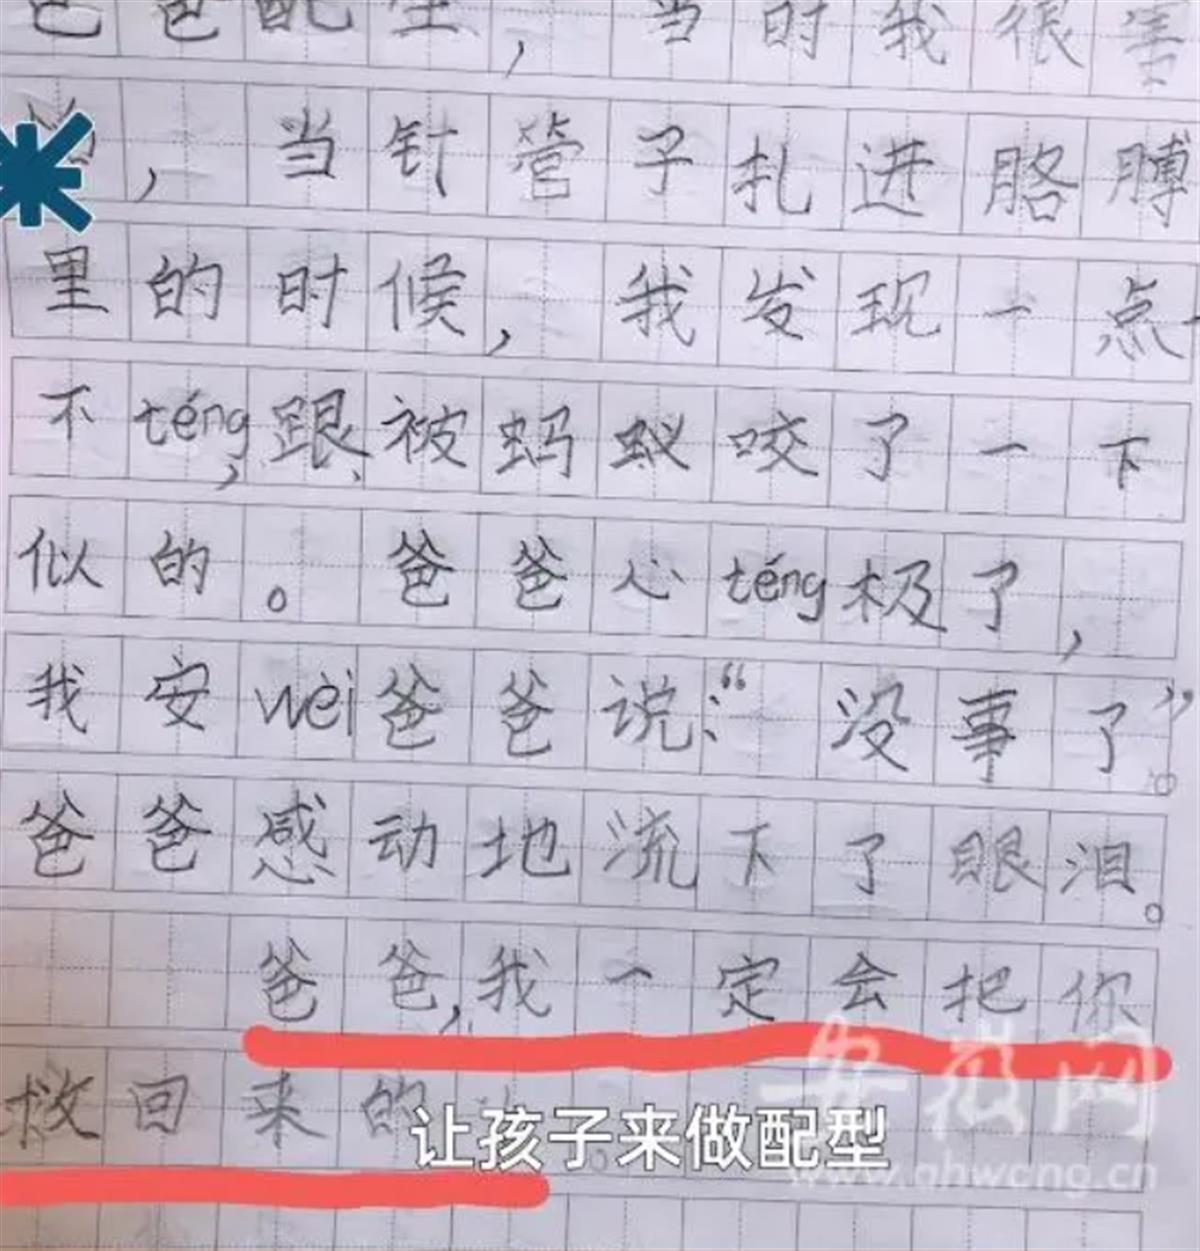 爸爸配型,当时我很害
怕,当针管子扎进胳膊
里的时候,我发现一点
不téng,跟被蚂蚁咬了一下
似的。爸爸心téng极了,
我安wèi爸爸说:“没事了”。
爸爸感动地流下了眼泪。
爸爸,我一定会把你
救回来的
让孩子来做配型
安徽网
www.ahwang.cn